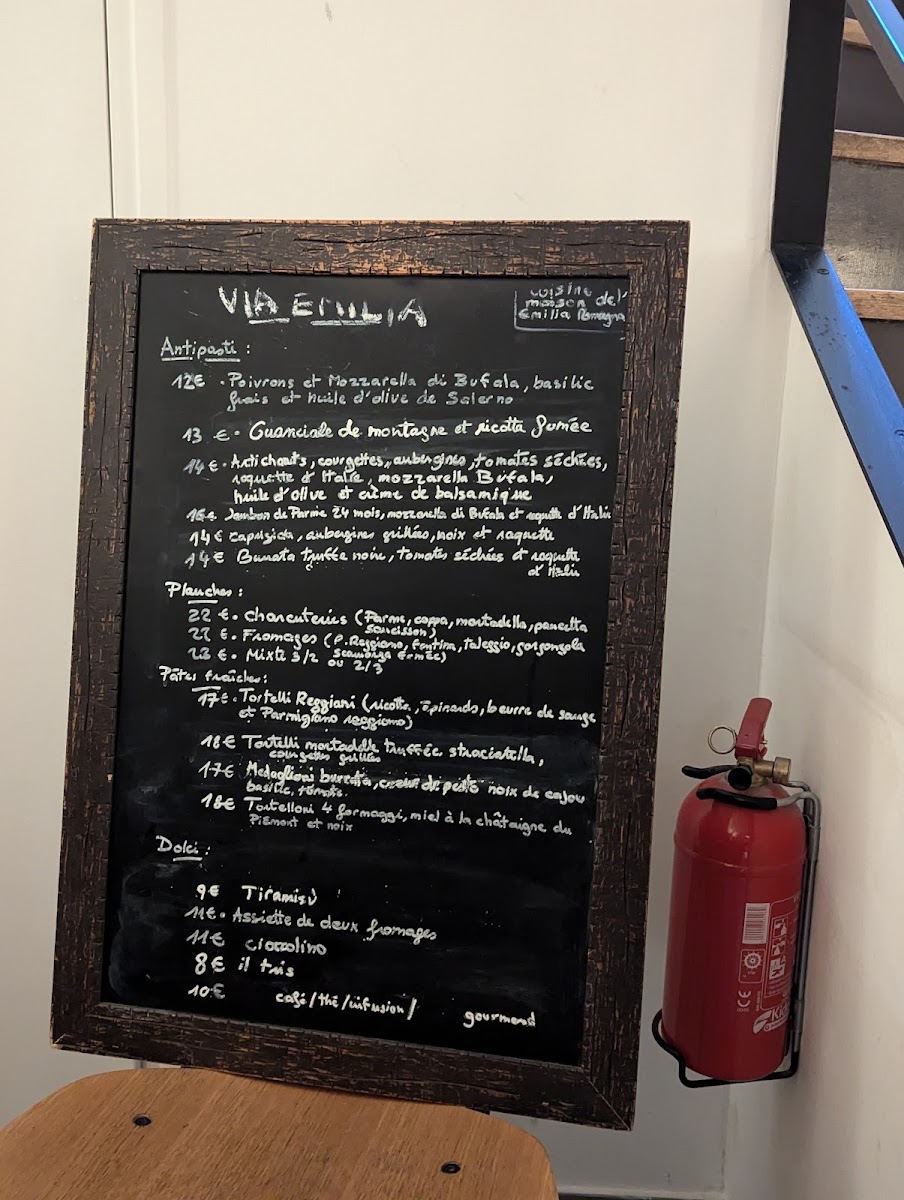 VIA EMILIA
cuisine
maison de l'
Emilia Romagna
Antipasti :
12€ · Poivrons et Mozzarella di Bufala, basilic
frais et huile d'olive de Salerno
13 €· Guanciale de montagne et ricotta fumée
14€· Artichauts, courgettes, aubergines, tomates séchées,
roquette d'Italie, mozzarella Bufala,
huile d'olive et crème de balsamique
16€ Jambon de Parme 24 mois, mozzarella di Bufala et roquette d'Italie
14€ Capriccia, aubergines grillées, noix et roquette
14€ Burrata truffe noire, tomates séchées et roquette
d'Italie
Planches :
22 €· Charcuteries (Parme, coppa, mortadella, pancetta
saucisson)
22 €· Fromages (P. Reggiano, fontina, taleggio, gorgonzola
Scamorza fumée)
23 €· Mixte 3/2 ou 2/3
Pâtes fraîches :
17€· Tortelli Reggiani (ricotta, épinards, beurre de sauge
et Parmigiano reggiano)
18€ Tortelli mortadelle truffée straciatella,
courgettes grillées
17€ Medaglioni burrata, cœur de pesto noix de cajou
basilic, tomate
18€ Tortelloni 4 formaggi, miel à la châtaigne du
Piémont et noix
Dolci :
9€ Tiramisù
11€· Assiette de deux fromages
11€ cioccolino
8€ il tris
10€ café/thé/infusion/ gourmand
CE